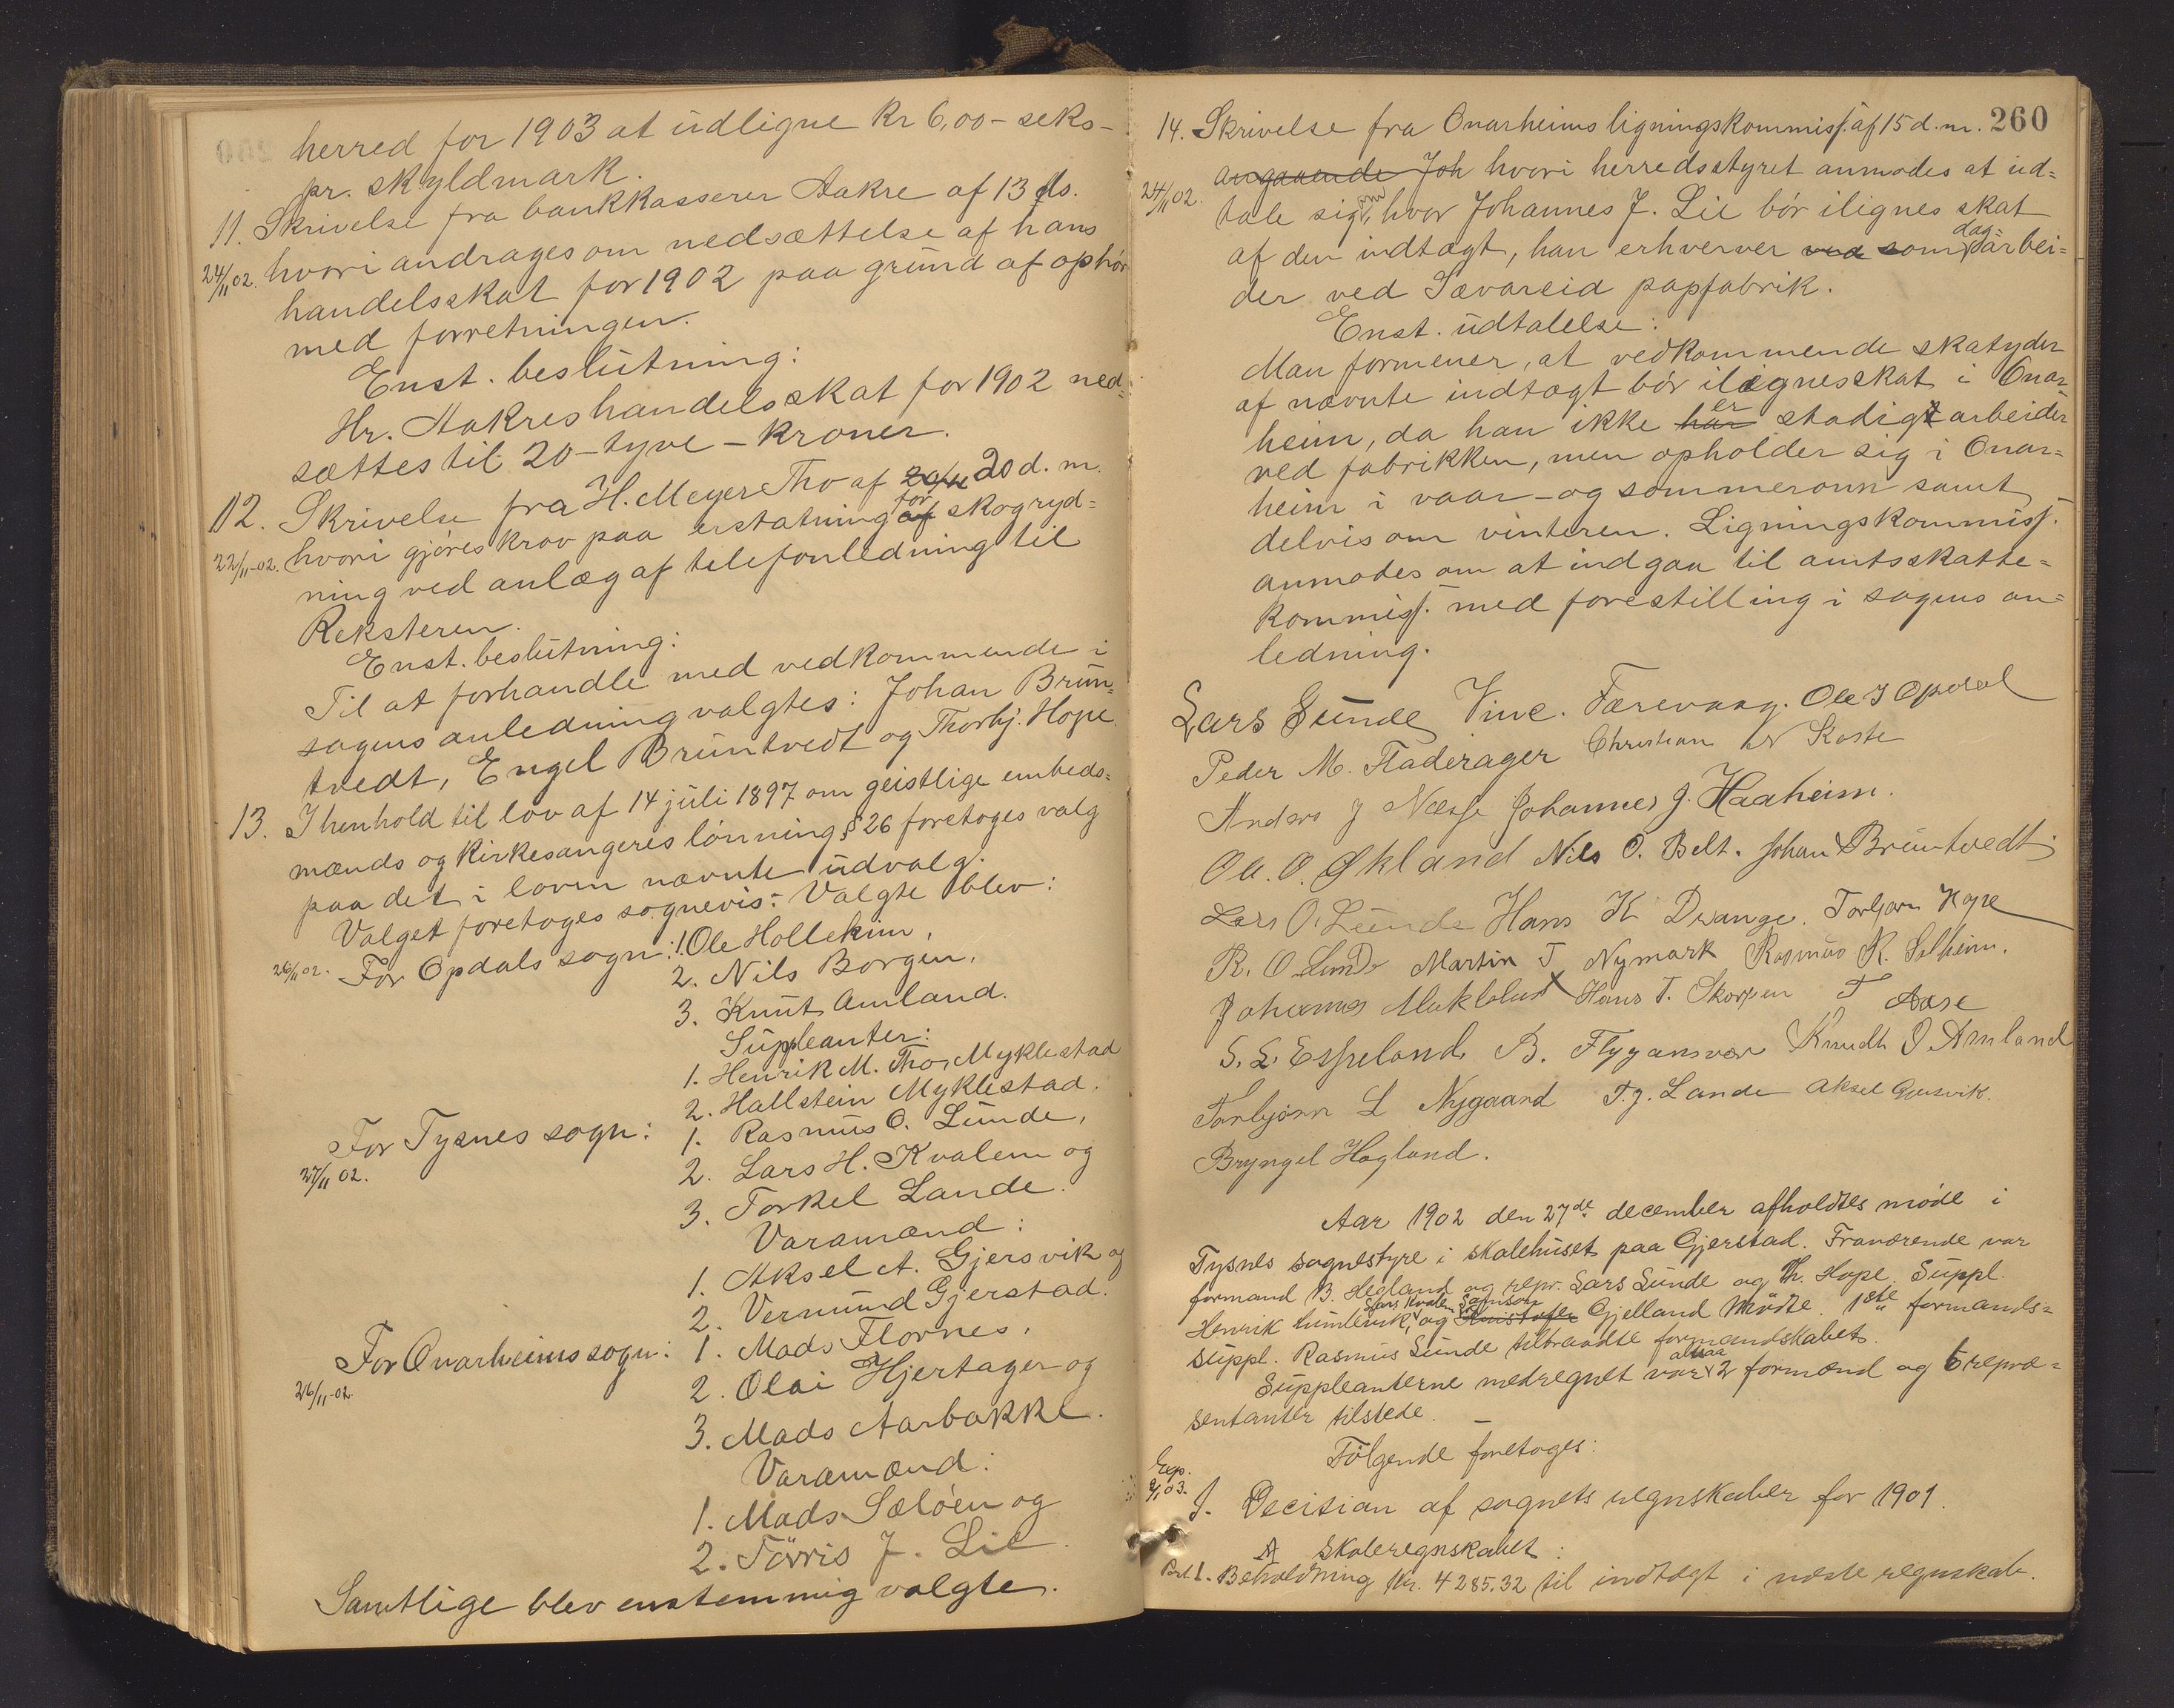 herred for 1903 at udligne kr 6,00 - seks -
pr. skyldmark.
11. Skrivelse fra bankkasserer Aakre af 13 ds.
24/11 02. hvori andrages om nedsættelse af hans
handelsskat for 1902 paa grund af ophør
med forretningen.
Enst. beslutning:
Hr. Aakres handelsskat for 1902 ned-
sættes til 20 - tyve - kroner.
12. Skrivelse fra H. Meyer Tho af 20/11 20 d. m.
22/11-02. hvori gjøres krav paa erstatning af for skogryd=
ning ved anlæg af telefonledning til
Reksteren.
Enst. beslutning:
Til at forhandle med vedkommende i
sagens anledning valgtes: Johan Brun-
tvedt, Engel Bruntvedt og Thorbj. Hope.
13. I henhold til lov af 14 juli 1897 om geistlige embeds=
mænds og kirkesangeres lønning § 26 foretoges valg
paa det i loven nævnte udvalg.
Valget foretoges sognevis: Valgte blev:
26/11 02. For Opdals sogn: 1. Ole Hollekim,
2. Nils Borgen,
3. Knut Amland.
Suppleanter:
1. Henrik M. Tho, Myklestad
2. Hallstein Myklestad.
For Tysnes sogn: 1. Rasmus O. Lunde,
27/11 02. 2. Lars H. Kvalem og
3. Torkel Lande.
Varamænd:
1. Aksel A. Gjersvik og
2. Vermund Gjerstad.
For Onarheims sogn: 1. Mads Flornes,
26/11-02. 2. Olai Hjertager og
3. Mads Aarbakke.
Varamænd:
1. Mads Sæløen og
2. Tørris J. Lie.
Samtlige blev enstemmig valgte.
260
14. Skrivelse fra Onarheims ligningskommisj. af 15 d. m.
angaaende Joh hvori herredsstyret anmodes at ud=
24/11 02. tale sig om, hvor Johannes J. Lie bør ilignes skat
af den indtægt, han erhverver ved som dag-arbei=
der ved Sævareid papfabrik.
Enst. udtalelse:
Man formener, at vedkommende skatyder
af nævnte indtægt bør ilignes skat i Onar-
heim, da han ikke har er stadig arbeider
ved fabrikken, men opholder sig i Onar=
heim i vaar- og sommeronn samt
delvis om vinteren. Ligningskommisj.
anmodes om at indgaa til amtsskatte=
kommisj. med forestilling i sagens an=
ledning.
Lars Sunde Vinc. Færevaag. Ole J Opdal
Peder M. Fladerager Christian N Koste
Anders J Næsse Johannes J. Haaheim.
Ola. O. Økland Nils O. Belt. Johan Bruntvedt
Lars O. Lunde Hans K Drange. Torbjørn Hope
R. O. Lunde Martin T Nymark Rasmus K. Solheim.
Johannes Mehlhus Hans T. Skorpen T Aase
S. L. Espeland B. Flygansvær Knudt O Amland
Torbjørn L Nygaard T. J. Lande Aksel Gjersvik.
Bryngel Hagland.
Aar 1902 den 27de december afholdtes møde i
Tysnes sognestyre i skolehuset paa Gjerstad. Fraværende var
formand B. Hegland og repr. Lars Sunde og Th. Hope. Suppl.
Henrik Lunlevik, Lars Kvalem og Kristofer Samson Gjelland mødte. 1ste formands=
suppl. Rasmus Lunde tiltraadte formandskabet.
Suppleanterne medregnet var altsaa 2 formænd og 6 repræ=
sentanter tilstede. -
Følgende foretoges:
Exp.
2/1 03. 1. Decision af sognets regnskaber for 1901.
A Skoleregnskabet:
Post 1. Beholdning kr. 4285.32 til indtægt i næste regnskab.